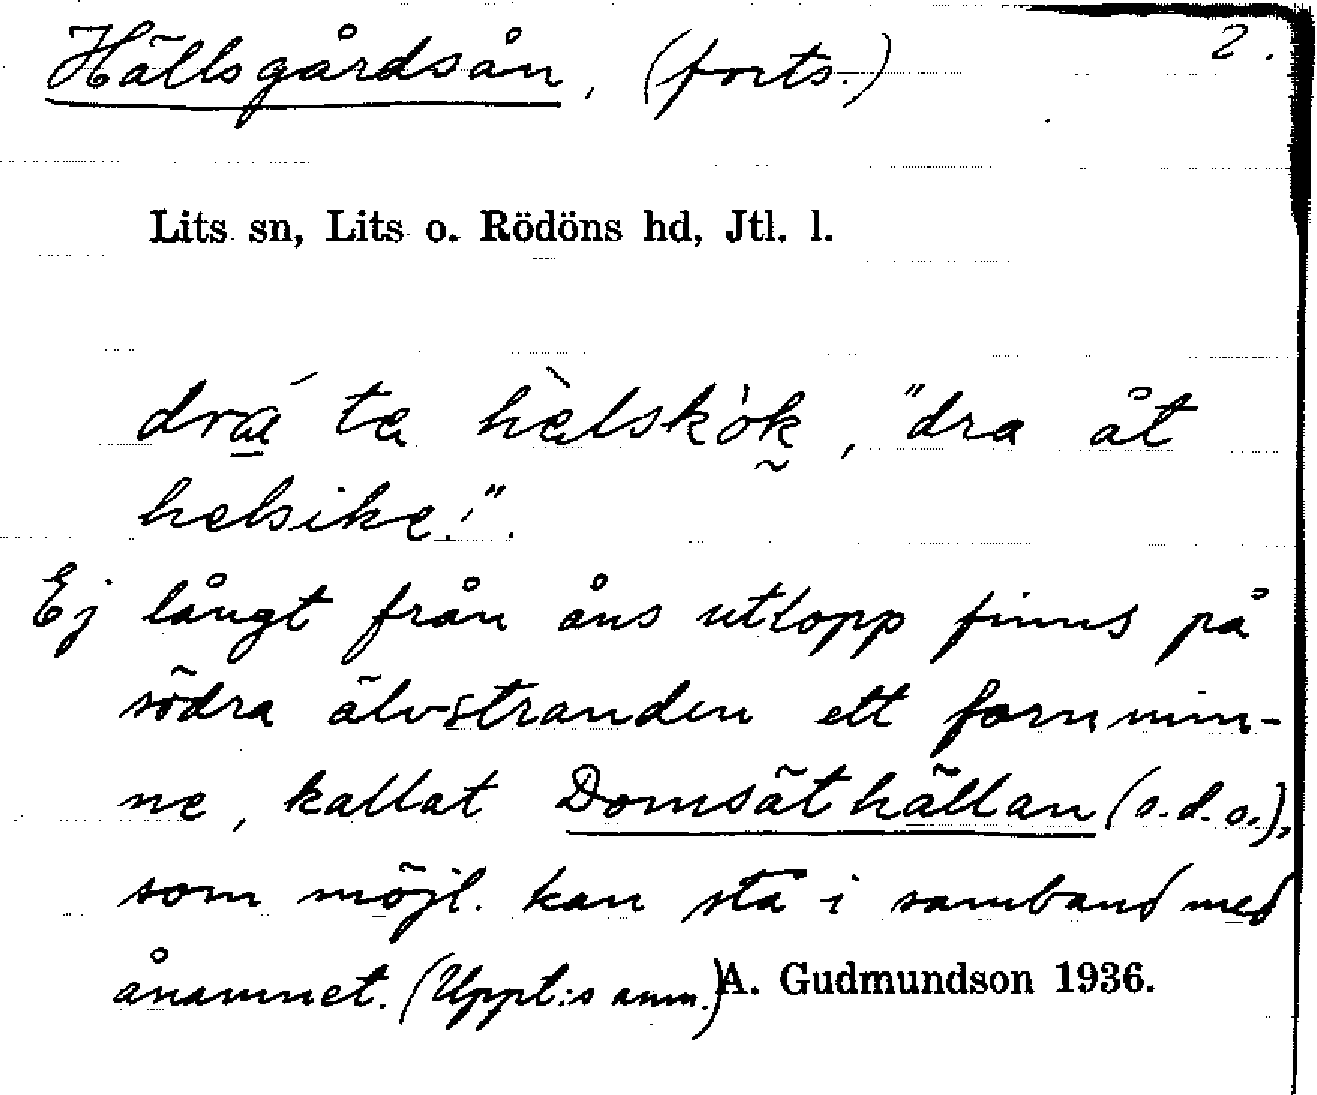 Hällsgårdsån, (forts.) 2.
Lits sn, Lits o. Rödöns hd, Jtl. l.
dra̲ ́ ta hèlskò̀k̰, "dra åt
helsike!".
Ej långt från åns utlopp finns på
södra älvstranden ett fornmin-
ne, kallat Domsäthällan (s.d.o.),
som möjl. kan stå i samband med
ånamnet. (Uppt:s anm.) A. Gudmundson 1936.